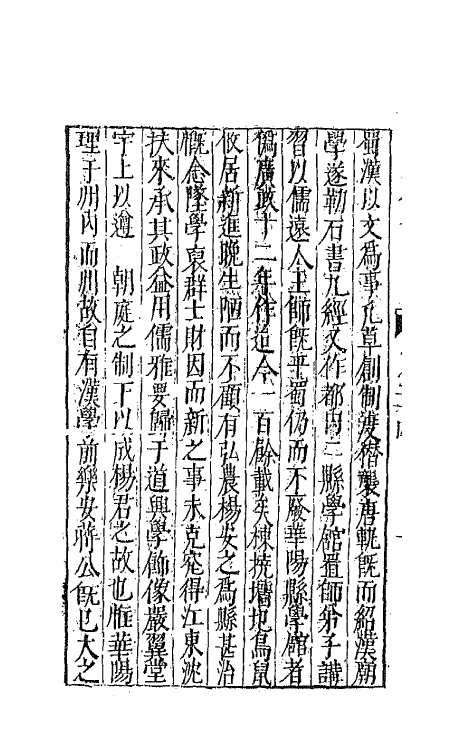 蜀漢以文爲事凡草創制度僭襲唐軌既而紹漢廟
學遂勒石書九經又作都内二縣學館置師弟子講
習以儒遠人王師既平蜀仍而不廢華陽縣學館者
僞廣政十二年作迨今一百餘載矣棟撓墻圯鳥鼠
攸居新進晚生陋而不顧有弘農楊安之爲縣甚治
慨念墜學裒群士財因而新之事未克寃得江東沈
扶來承其政益用儒雅要歸于道興學飾像嚴翼堂
宇上以遵　朝庭之制下以成楊君之故也雖華陽
理于州内而州故自有漢學前樂安蔣公既已大之